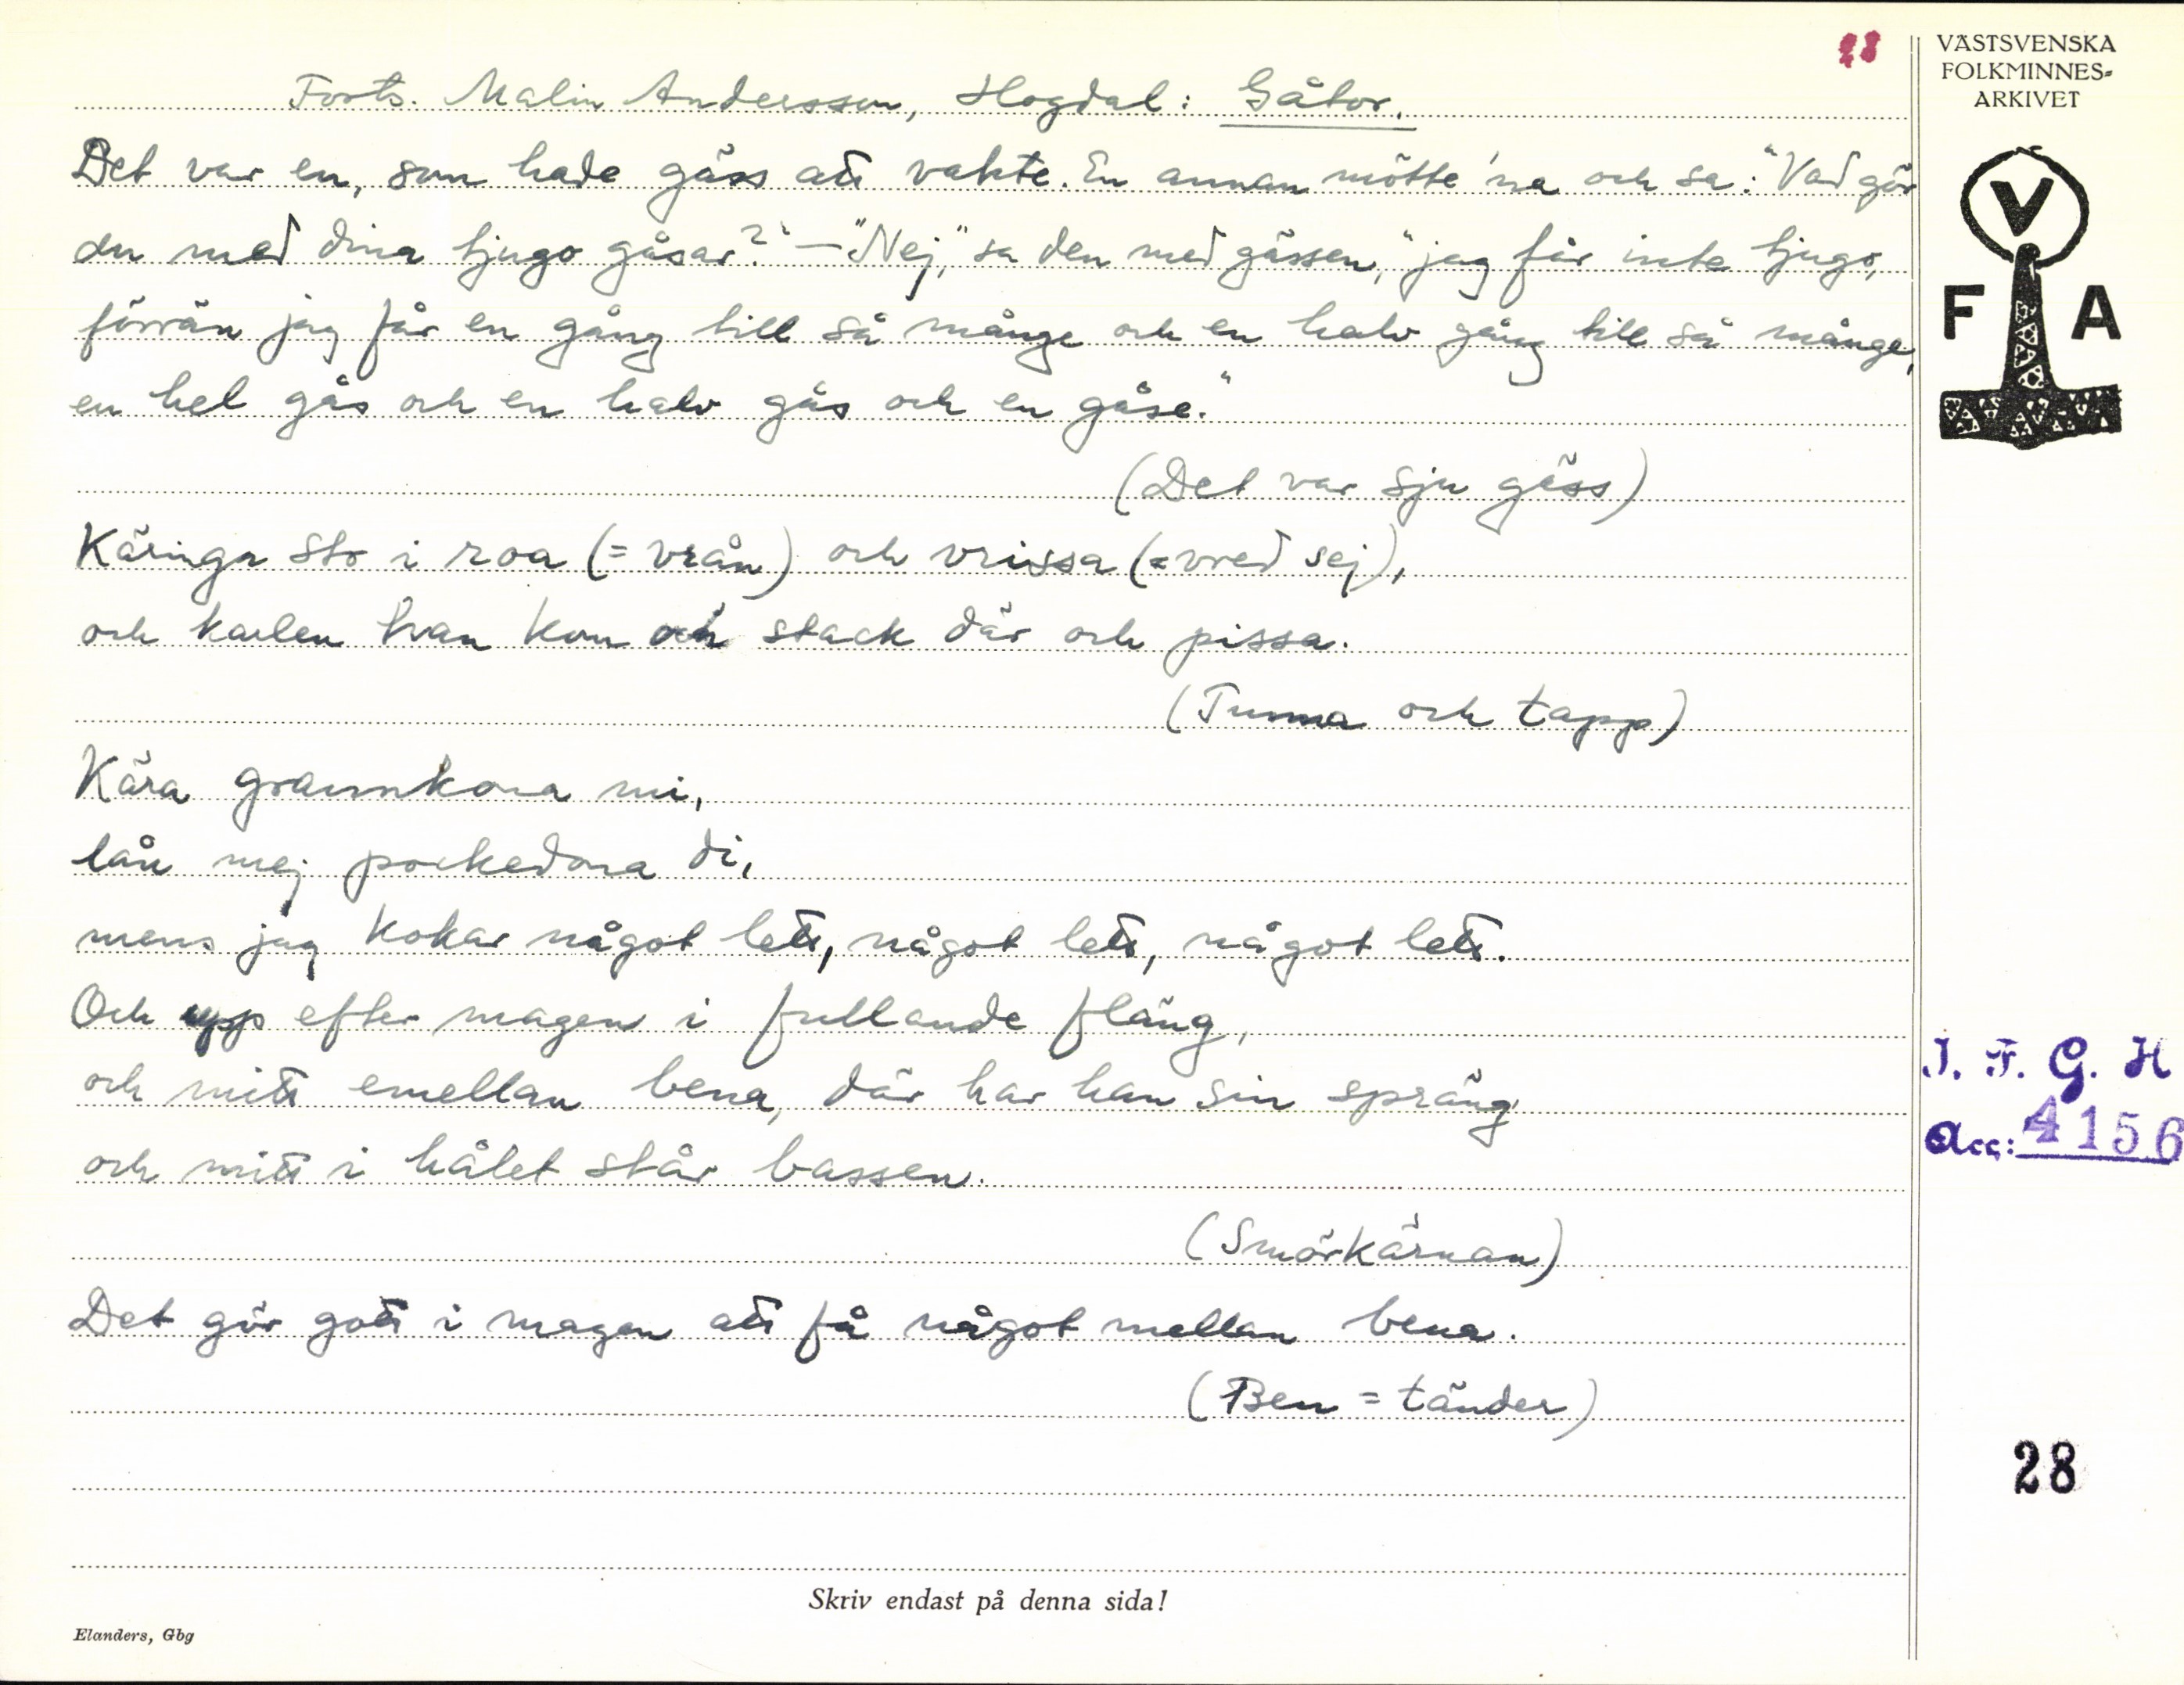 28
VÄSTSVENSKA
FOLKMINNES-
ARKIVET
V
F A
Forts. Malin Andersson, Hogdal: Gåtor.
Det var en, som hade gäss att vakte. En annan mötte 'na och sa: "Vad gör
du med dina tjugo gåsar?" — "Nej," sa den med gässen, "jag får inte tjugo,
förrän jag får en gång till så månge och en halv gång till så månge,
en hel gås och en halv gås och en gåse."
(Det var sju gäss)
Käringa sto i roa (= vrån) och vrissa (= vred sej),
och karlen han kom och stack där och pissa.
(Tunna och tapp)
Kära grannkona mi,
lån mej porkedona di,
mens jag kokar något lett, något lett, något lett.
Och upp efter magen i fullande fläng,
och mitt emellan bena, där har han sin spräng
och mitt i hålet står bassen.
(Smörkärnan)
Det gör gott i magen att få något mellan bena.
(Ben = tänder)
I. F. G. H
Acc: 4156
28
Skriv endast på denna sida!
Elanders, Gbg